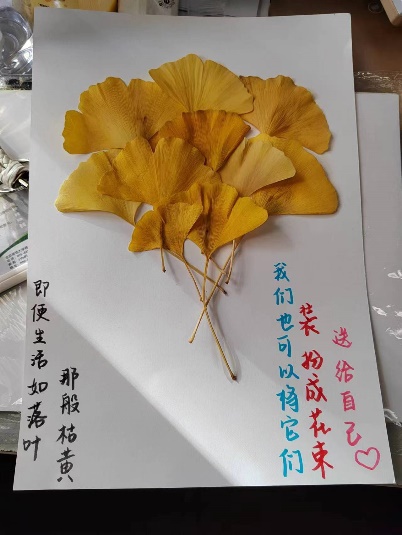 即便生活如落叶
那般枯黄
我们也可以将它们
装扮成花束
送给自己♡